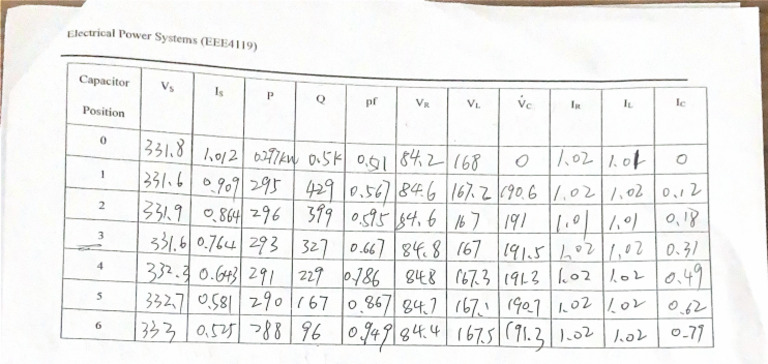 Electrical Power Systems (EEE4119)
Capacitor Position Vs Is P Q pf VR VL V̇c IR IL Ic
0 331.8 1.012 0.297kw 0.5k 0.51 84.2 168 0 1.02 1.01 0
1 331.6 0.909 295 429 0.567 84.6 167.2 190.6 1.02 1.02 0.12
2 331.9 0.864 296 399 0.595 84.6 167 191 1.01 1.01 0.18
3 331.6 0.764 293 327 0.667 84.8 167 191.5 1.02 1.02 0.31
4 332.3 0.643 291 229 0.786 848 167.3 191.3 1.02 1.02 0.49
5 332.7 0.581 290 167 0.867 84.7 167.1 190.7 1.02 1.02 0.62
6 333 0.525 288 96 0.949 84.4 167.5 191.3 1.02 1.02 0.79